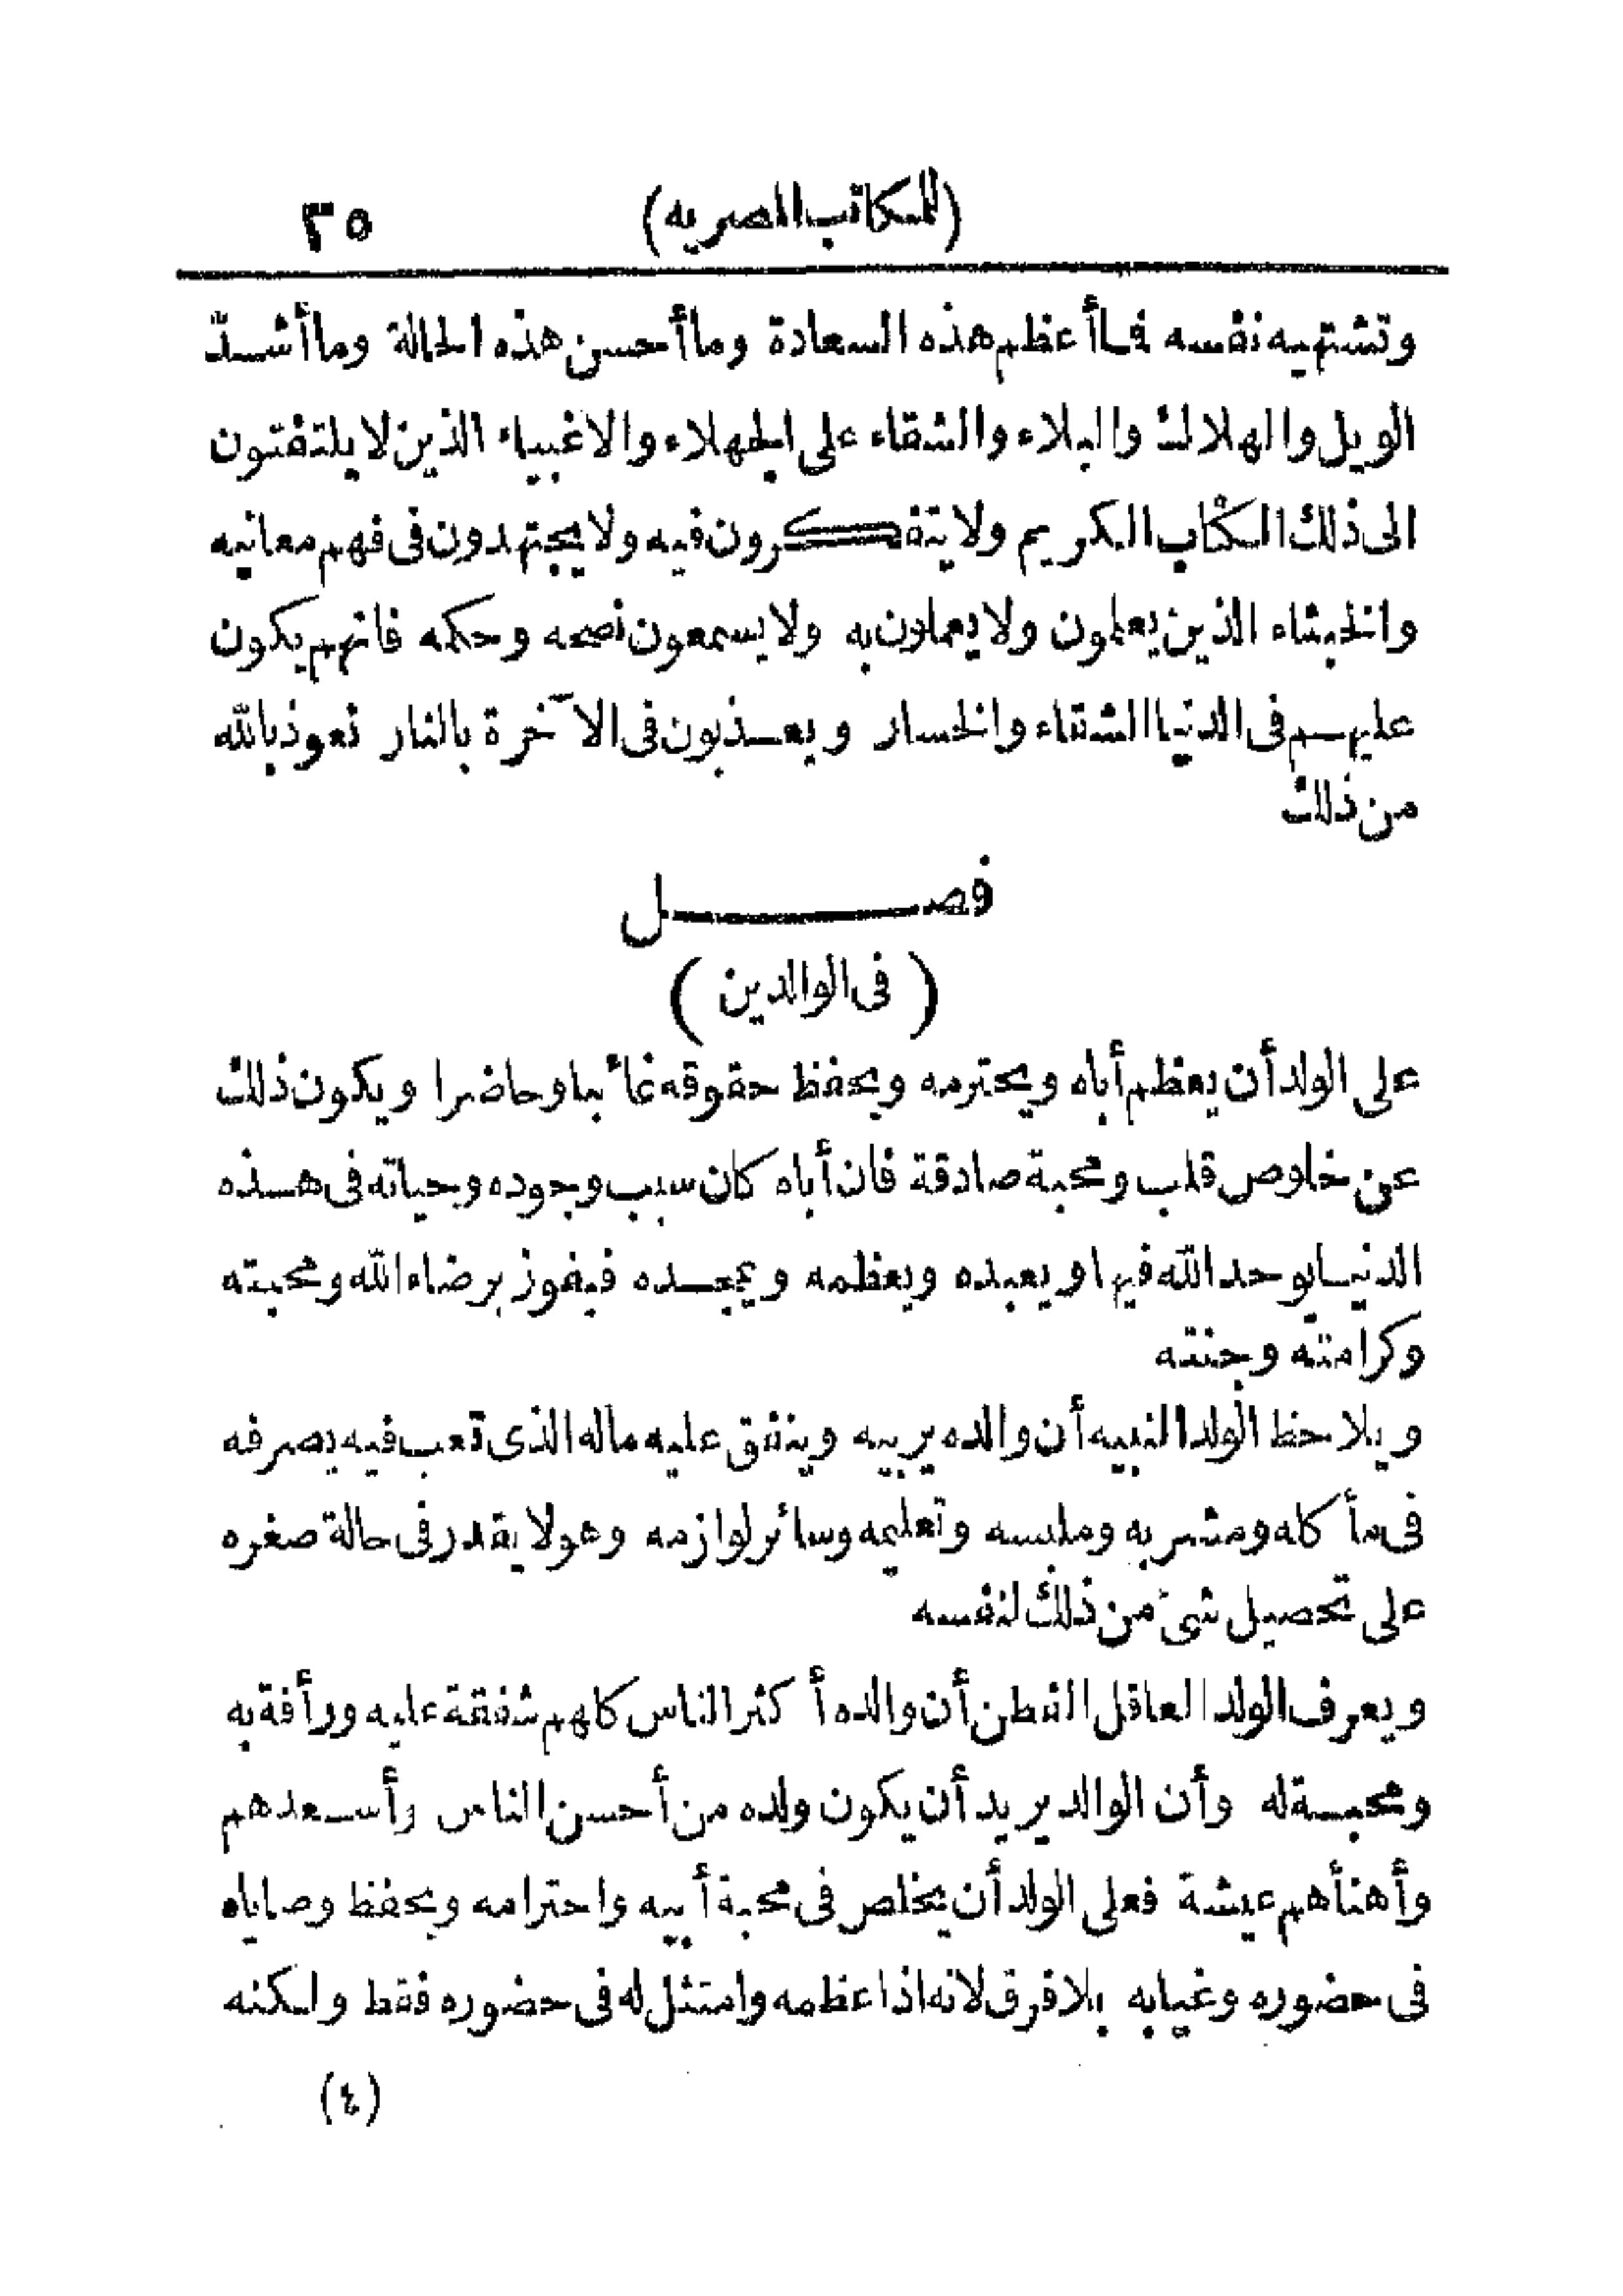 (للمكاتب المصريه) ٢٥
وتشتهيه نفسه فما أعظم هذه السعادة وما أحسن هذه الحالة وما أشدّ
الويل والهلاك والبلاء والشقاء على الجهلاء والاغبياء الذين لا يلتفتون
الى ذلك الكتاب الكريم ولا يتفكرون فيه ولا يجتهدون فى فهم معانيه
والخبثاء الذين يعلمون ولا يعملون به ولا يسمعون نصحه وحكمه فانهم يكون
عليهم فى الدنيا الشقاء والخسار ويعذبون فى الآخرة بالنار نعوذ بالله
من ذلك
فصل
(فى الوالدين)
على الولد أن يعظم أباه ويحترمه ويحفظ حقوقه غائبا وحاضرا ويكون ذلك
عن خلوص قلب ومحبة صادقة فان أباه كان سبب وجوده وحياته فى هذه
الدنيا يوحد الله فيها ويعبده ويعظمه ويمجده فيفوز برضاء الله ومحبته
وكرامته وجنته
ويلاحظ الولد النبيه أن والده يربيه وينفق عليه ماله الذى تعب فيه يصرفه
فى مأكله ومشربه وملبسه وتعليمه وسائر لوازمه وهو لا يقدر فى حالة صغره
على تحصيل شئ من ذلك لنفسه
ويعرف الولد العاقل الفطن أن والده أكثر الناس كلهم شفقة عليه ورأفة به
ومحبة له وأن الوالد يريد أن يكون ولده من أحسن الناس وأسعدهم
وأهنأهم عيشة فعلى الولد أن يخلص فى محبة أبيه واحترامه ويحفظ وصاياه
فى حضوره وغيابه بلا فرق لانه اذا عظمه وامتثل له فى حضوره فقط ولكنه
(٤)